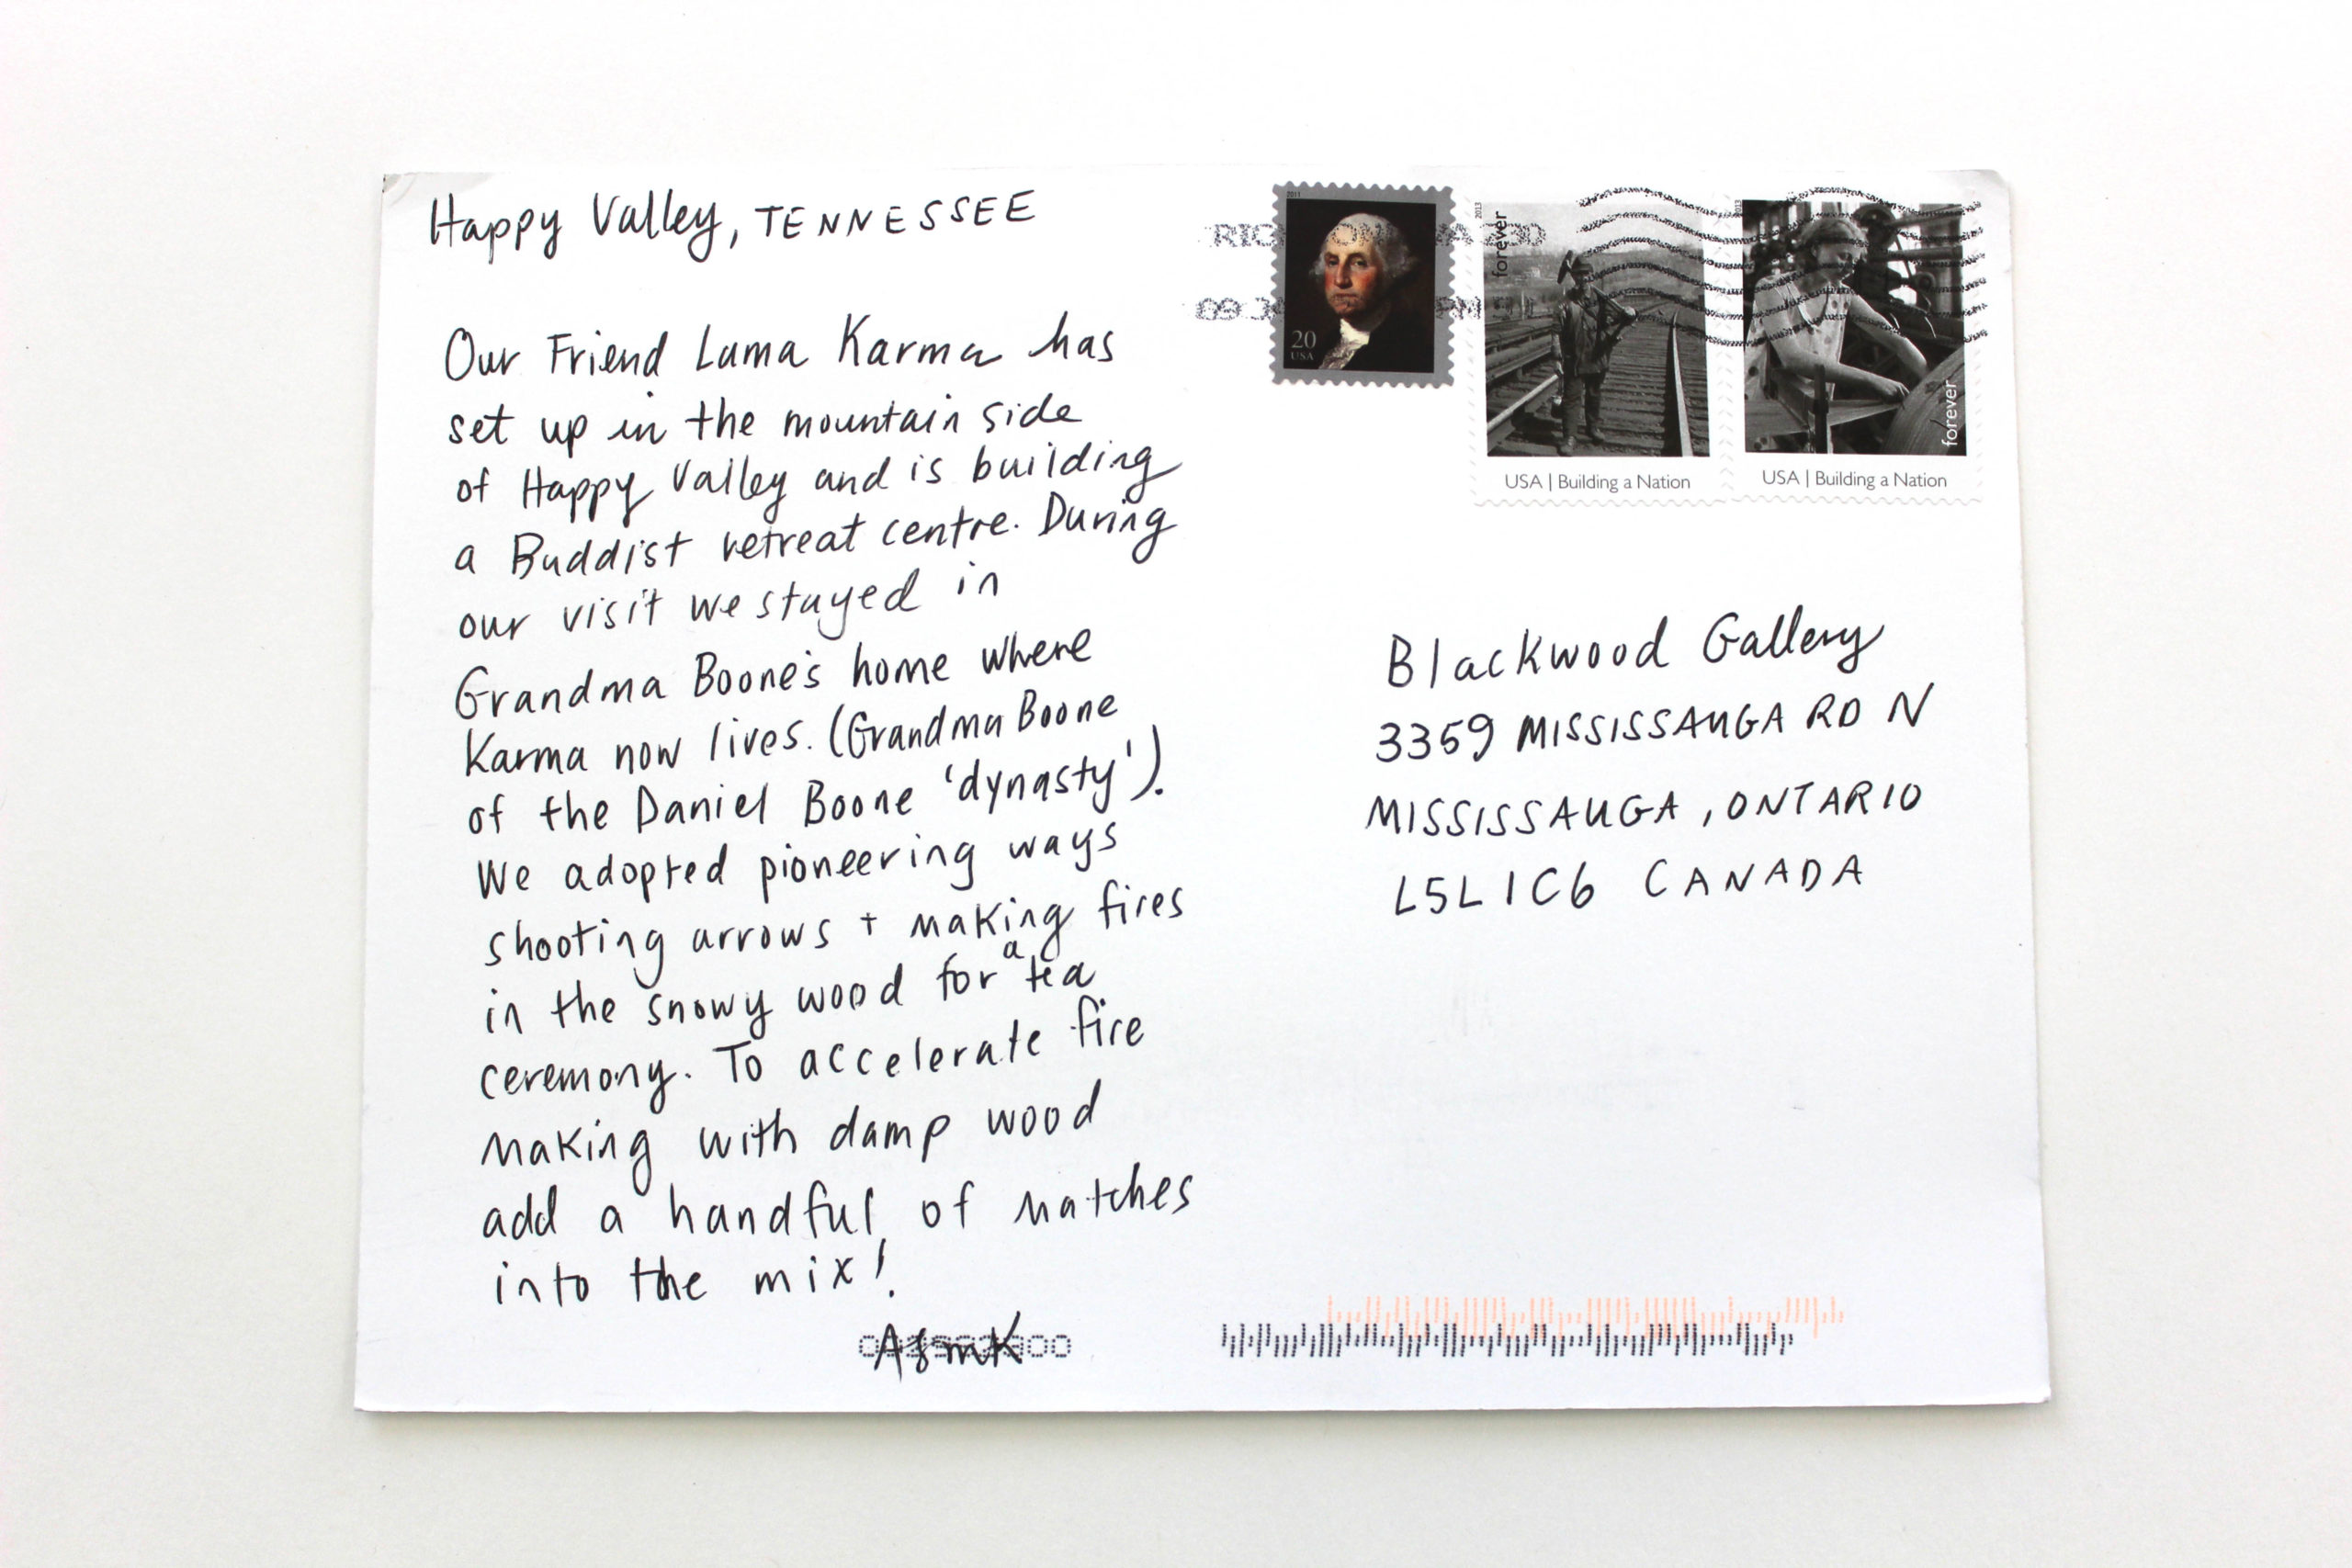 Happy Valley, TENNESSEE
Our Friend Lama Karma has
set up in the mountain side
of Happy Valley and is building
a Buddist retreat centre. During
our visit we stayed in
Grandma Boone's home where
Karma now lives. (Grandma Boone
of the Daniel Boone 'dynasty').
We adopted pioneering ways
shooting arrows + making fires
in the snowy wood for a tea
ceremony. To accelerate fire
making with damp wood
add a handful of matches
into the mix!
2011
20
USA
2013
forever
USA | Building a Nation
2013
forever
USA | Building a Nation
Blackwood Gallery
3359 MISSISSAUGA RD N
MISSISSAUGA, ONTARIO
L5L1C6 CANADA